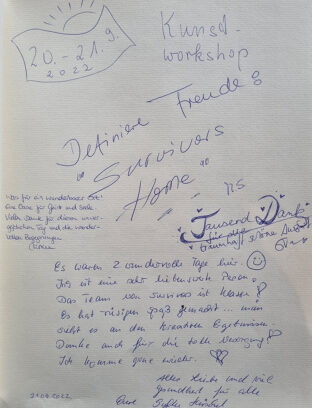 20. - 21.9.
2022
Kunst-
workshop
Definiere Freude:
"Survivors
Home"
Was für ein wunderbarer Ort!
Eine Oase für Geist und Seele.
Vielen Dank für diesen unver-
gesslichen Tag und die wunder-
vollen Begegnungen
Tausend Dank
für die
traumhaft schöne
Es waren 2 wundervolle Tage hier.
Ihr ist eine sehr liebenswerte Person.
Das Team von survivors ist klasse!
Es hat riesigen Spaß gemacht ... man
sieht es an den kreativen Ergebnissen.
Danke auch für die tolle Versorgung!
Ich komme gerne wieder.
Alles Liebe und viel
Gesundheit für alle
Eure
21.09.2022